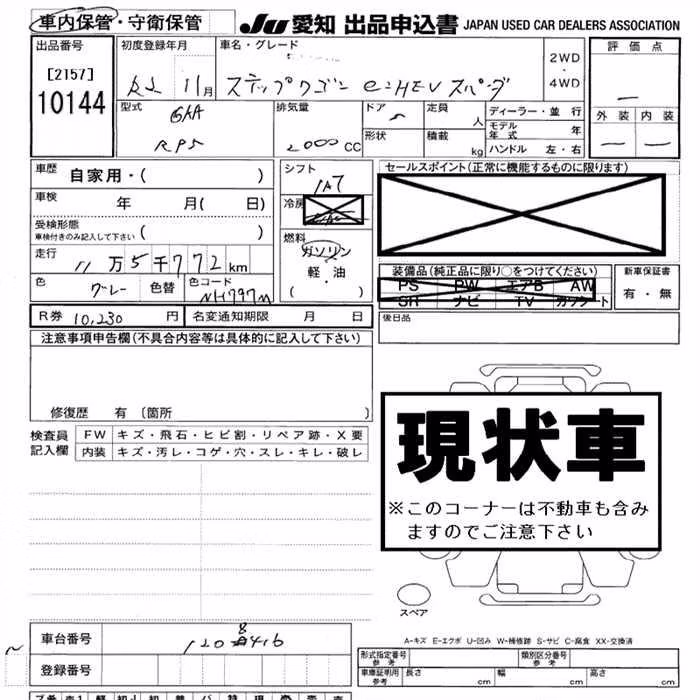 車内保管・守衛保管
JU 愛知 出品申込書 JAPAN USED CAR DEALERS ASSOCIATION
出品番号
[2157]
10144
初度登録年月
11月
車名・グレード
ステップワゴン e:HEV スパーダ
2WD
・
4WD
評価点
外装 内装
型式
6AA
RP5
排気量
2000 CC
ドア
5
定員
人
形状
積載
kg
ディーラー・並行
モデル年式 年
ハンドル 左・右
車歴
自家用・( )
車検
年 月( 日)
受検形態
車検付きのみ記入して下さい ( )
走行
11万5千772km
色
グレー
色替
色コード
NH797M
シフト
IAT
冷房
燃料
ガソリン
・
軽油
( )
セールスポイント(正常に機能するものに限ります)
装備品(純正品に限り○をつけてください)
PS PW エアB AW
SR ナビ TV カワシート
新車保証書
有・無
後日品
R券 10,230 円
名変通知期限 月 日
注意事項申告欄(不具合内容等は具体的に記入して下さい)
修復歴 有 [箇所 ]
検査員記入欄
FW キズ・飛石・ヒビ割・リペア跡・X要
内装 キズ・汚レ・コゲ・穴・スレ・キレ・破レ
現状車
※このコーナーは不動車も含み
ますのでご注意下さい
スペア
A-キズ E-エクボ U-凹み W-補修跡 S-サビ C-腐食 XX-交換済
車台番号
登録番号
形式指定番号
参考
類別区分番号
参考
車庫証明用
参考
長さ cm 幅 cm 高さ cm